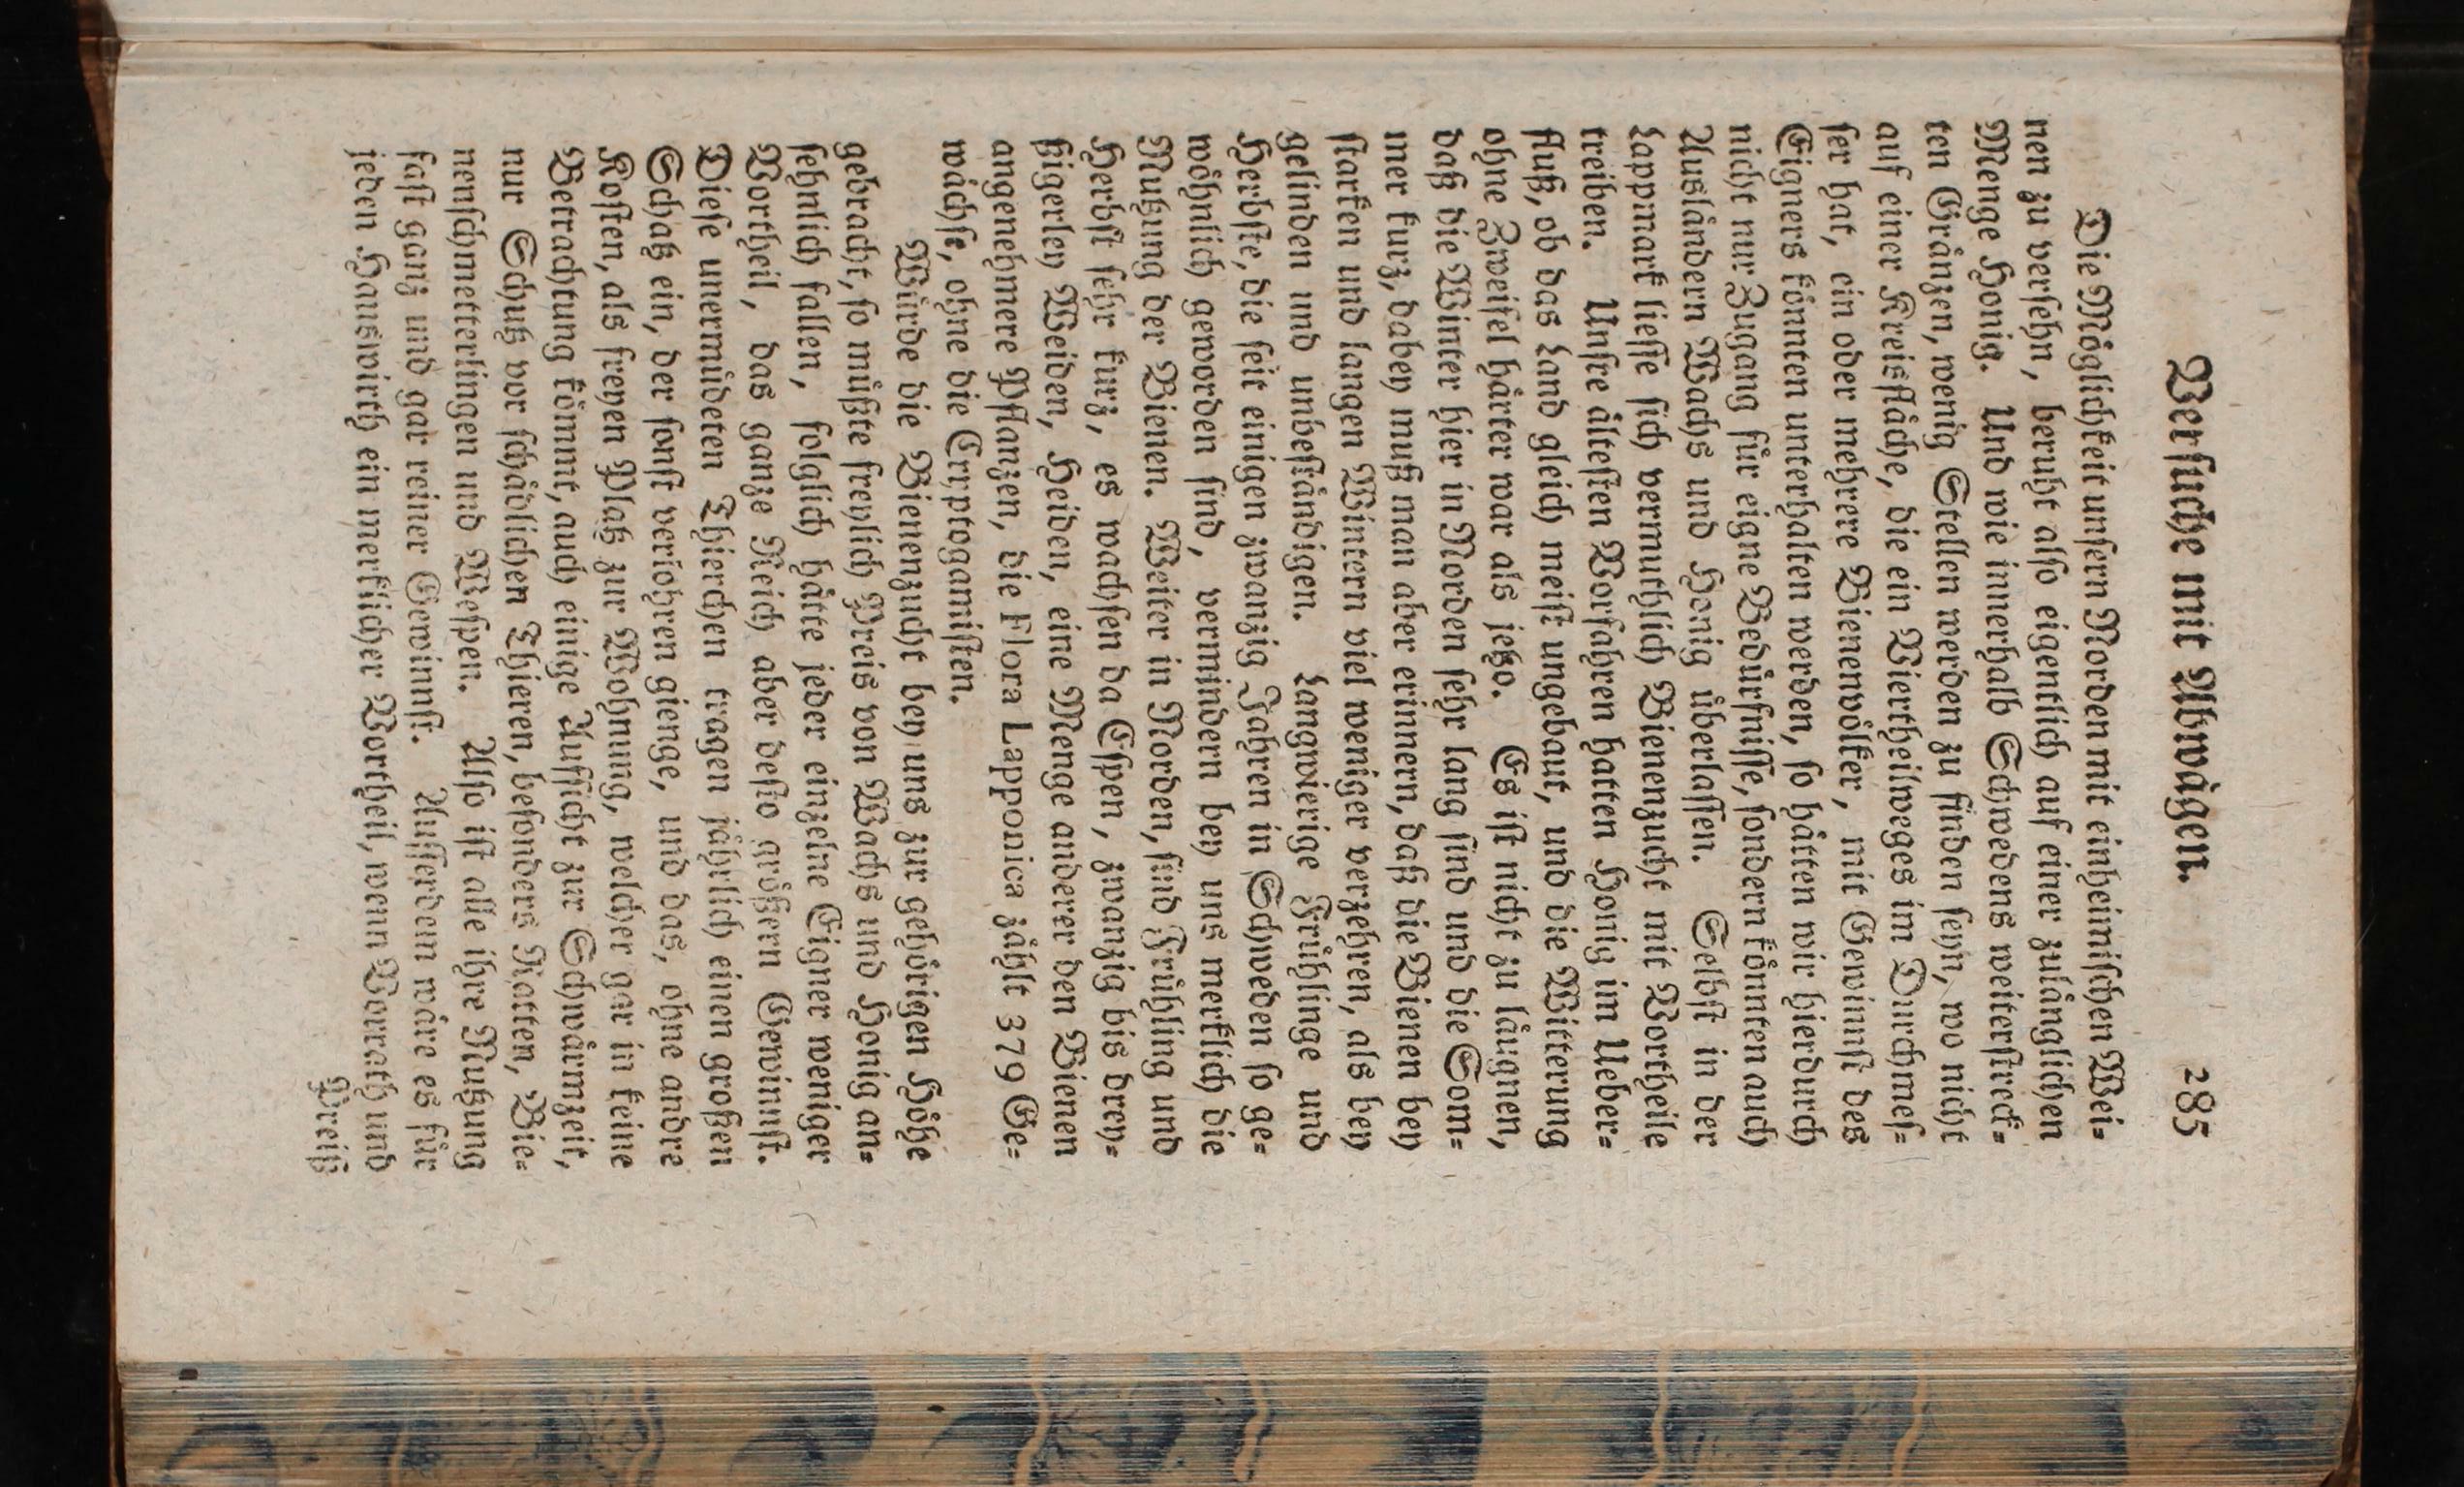 Versuche mit Abwägen. 285
Die Möglichkeit unsern Norden mit einheimischen Wei-
nen zu versehn, beruht also eigentlich auf einer zulänglichen
Menge Honig. Und wie innerhalb Schwedens weiterstreck-
ten Gränzen, wenig Stellen werden zu finden seyn, wo nicht
auf einer Kreisfläche, die ein Viertheilweges im Durchmes-
ser hat, ein oder mehrere Bienenvölker, mit Gewinnst des
Eigners könnten unterhalten werden, so hätten wir hierdurch
nicht nur Zugang für eigne Bedürfnisse, sondern könnten auch
Ausländern Wachs und Honig überlassen. Selbst in der
Lappmark liesse sich vermuthlich Bienenzucht mit Vortheile
treiben. Unsre ältesten Vorfahren hatten Honig im Ueber-
fluß, ob das Land gleich meist ungebaut, und die Witterung
ohne Zweifel härter war als jetzo. Es ist nicht zu läugnen,
daß die Winter hier in Norden sehr lang sind und die Som-
mer kurz, dabey muß man aber erinnern, daß die Bienen bey
starken und langen Wintern viel weniger verzehren, als bey
gelinden und unbeständigen. Langwierige Frühlinge und
Herbste, die seit einigen zwanzig Jahren in Schweden so ge-
wöhnlich geworden sind, vermindern bey uns merklich die
Nutzung der Bienen. Weiter in Norden, sind Frühling und
Herbst sehr kurz, es wachsen da Espen, zwanzig bis drey-
ßigerley Weiden, Heiden, eine Menge anderer den Bienen
angenehmere Pflanzen, die Flora Lapponica zählt 379 Ge-
wächse, ohne die Cryptogamisten.
Würde die Bienenzucht bey uns zur gehörigen Höhe
gebracht, so müßte freylich Preis von Wachs und Honig an-
sehnlich fallen, folglich hätte jeder einzelne Eigner weniger
Vortheil, das ganze Reich aber desto größern Gewinnst.
Diese unermüdeten Thierchen tragen jährlich einen großen
Schatz ein, der sonst verlohren gienge, und das, ohne andre
Kosten, als freyen Platz zur Wohnung, welcher gar in keine
Betrachtung kömmt, auch einige Aufsicht zur Schwärmzeit,
nur Schutz vor schädlichen Thieren, besonders Ratten, Bie-
nenschmetterlingen und Wespen. Also ist alle ihre Nutzung
fast ganz und gar reiner Gewinnst. Ausserdem wäre es für
jeden Hauswirth ein merklicher Vortheil, wenn Vorrath und
Preiß